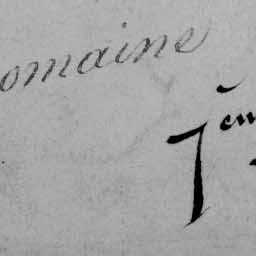 omains
7em